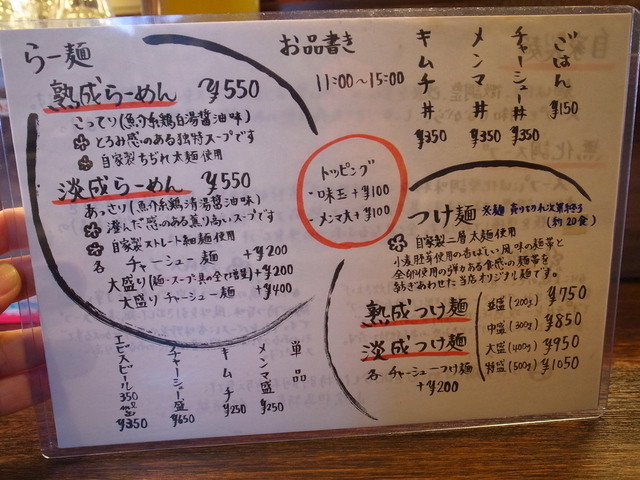 らー麺
熟成らーめん ¥550
こってり(魚介系鶏白湯醬油味)
とろみ感のある独特スープです
自家製ちぢれ太麺使用
淡成らーめん ¥550
あっさり(魚介系鶏清湯醬油味)
澄んだ感のある薫り高いスープです
自家製ストレート細麺使用
各 チャーシュー麺 +¥200
大盛り(麺・スープ・具の全て増量)+¥200
大盛り チャーシュー麺 +¥400
お品書き
11:00~15:00
トッピング
・味玉+¥100
・メンマ大+¥100
ごはん ¥150
チャーシュー丼 ¥350
メンマ丼 ¥350
キムチ丼 ¥350
つけ麺 ※麺売り切れ次第終了
(約20食)
自家製二層太麺使用
小麦胚芽使用の香ばしい風味の麺帯と
全卵使用の弾力ある食感の麺帯を
紡ぎあわせた当店オリジナル麺です。
熟成つけ麺
淡成つけ麺
並盛(200g) ¥750
中盛(300g) ¥850
大盛(400g) ¥950
特盛(500g) ¥1050
各 チャーシューつけ麺
+¥200
単品
メンマ盛 ¥250
キムチ ¥250
チャーシュー盛 ¥650
ヱビスビール350ml ¥350